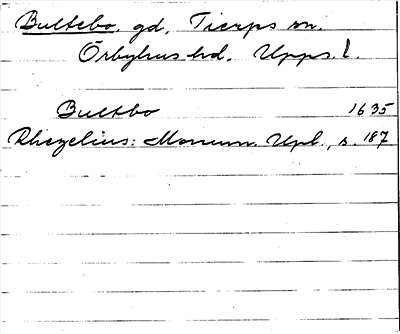 Bultebo, gd, Tierps sn.
Örbyhus hd, Upps. l.
Bultbo 1635
Rhezelius: Monum. Upl., s. 187